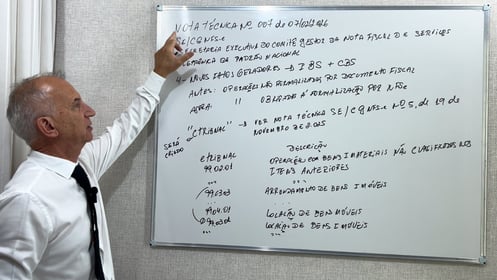 NOTA TÉCNICA Nº 007 de 07/02/2026
SE/CGNFS-e
SECRETARIA EXECUTIVA DO COMITÊ GESTOR DA NOTA FISCAL DE SERVIÇOS
ELETRÔNICA DE PADRÃO NACIONAL
1- NOVOS FATOS GERADORES → IBS + CBS
ANTES: OPERAÇÕES NÃO FORMALIZADAS POR DOCUMENTO FISCAL
AGORA: " OBRIGADAS A FORMALIZAÇÃO POR NFSe
SERÁ CRIADO "CTRIBNAC" → VER NOTA TÉCNICA SE/CGNFSe Nº 5, de 19 de
NOVEMBRO DE 2025
CTRIBNAC DESCRIÇÃO
99.02.01 OPERAÇÕES COM BENS IMATERIAIS NÃO CLASSIFICADAS NOS
ITENS ANTERIORES
...
99.03.03 ARRENDAMENTO DE BENS IMÓVEIS
...
99.04.01 LOCAÇÃO DE BENS MÓVEIS
LOCAÇÃO DE BENS IMÓVEIS
...